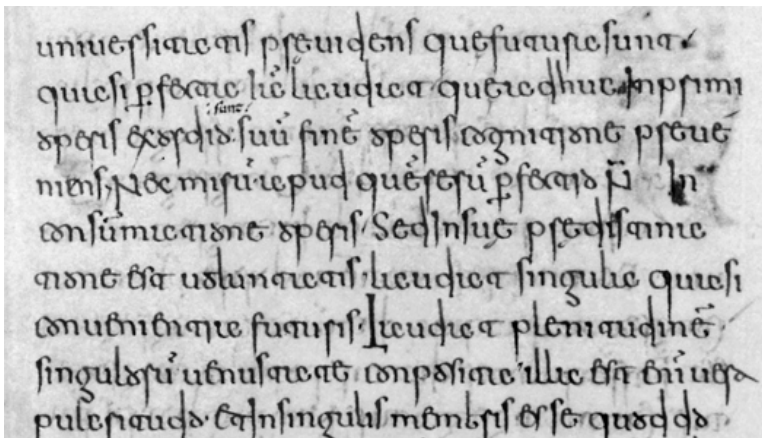 uniuersitatis preuidens que futura sunt.
quasi p̱fecta iā laudat que adhuc In primi
: sunt :
operis exordio suū finē operis cognitione preue
niens, Nec mirū apud quē rerū p̱fectio n̄ In
consūmatione operis. Sed In sue predistina
tione est uoluntatis. laudat singula quasi
conuenientia futuris. Laudat plenitudinē.
singulorū uenustate conposita. illa est enī uera
pulcritudo. Et In singulis membris esse quod do